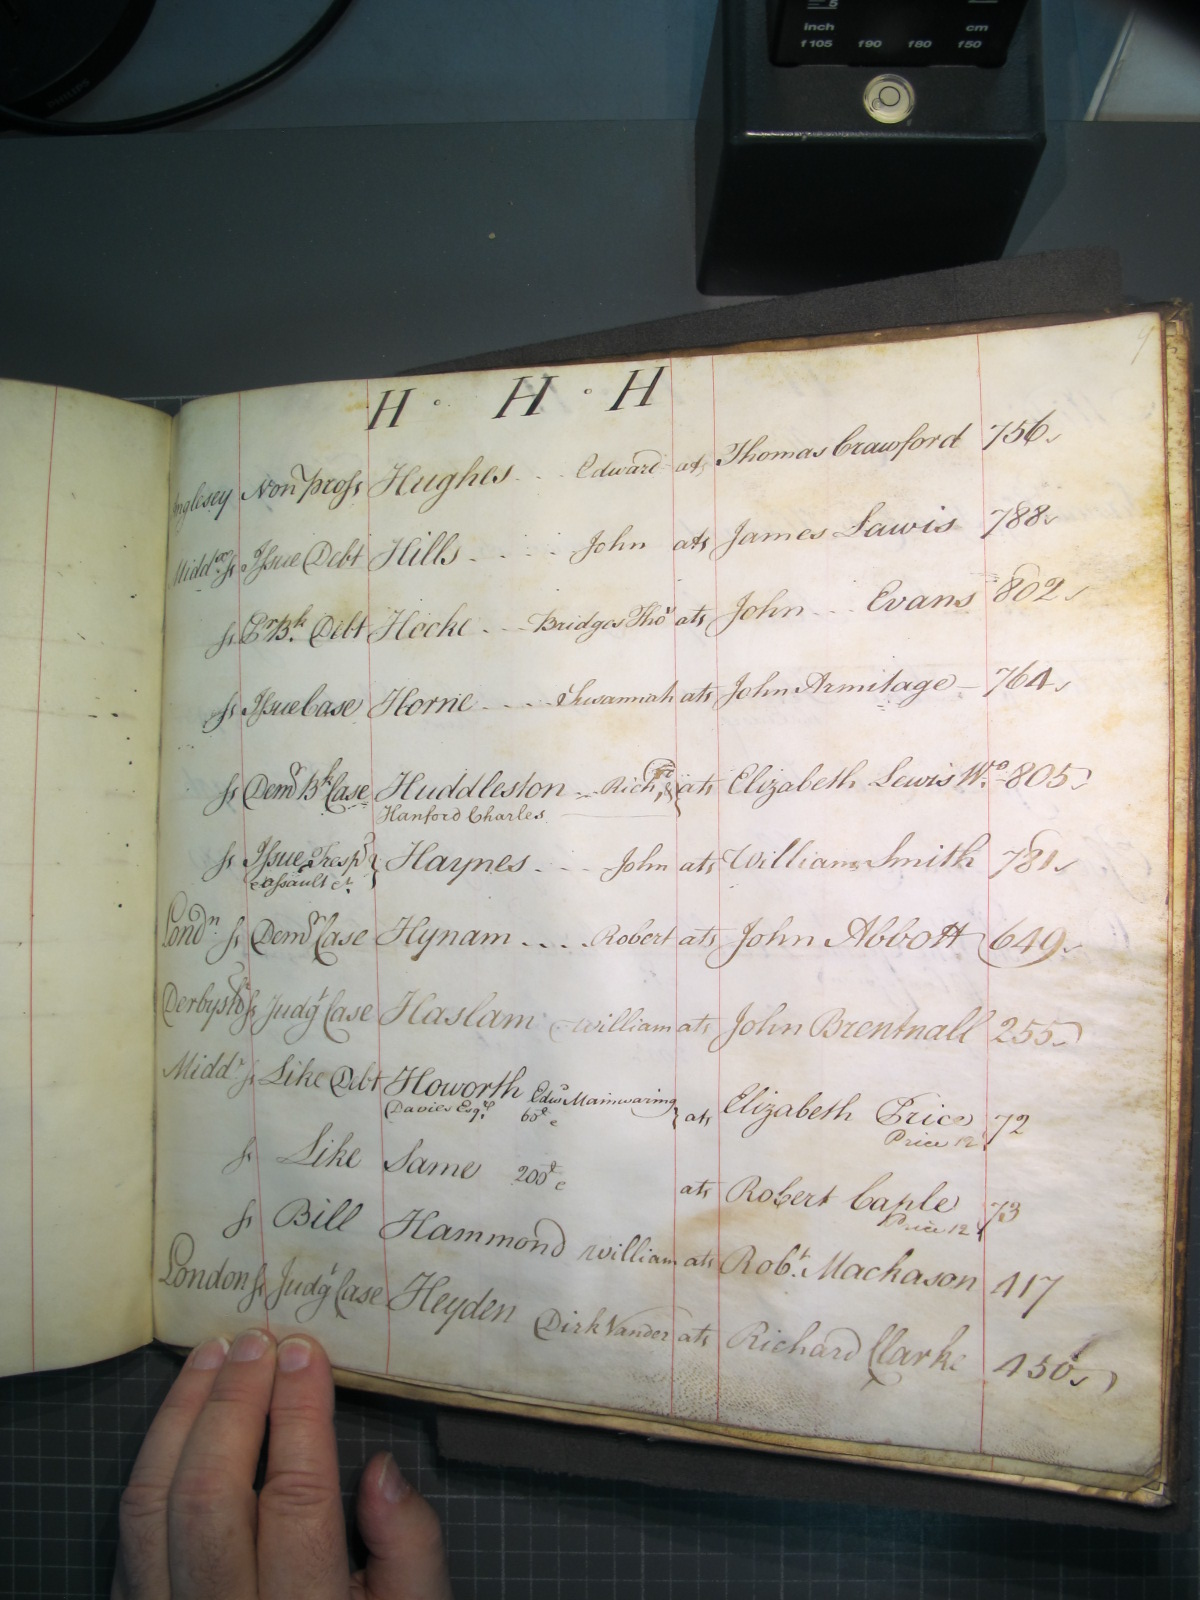 inch cm
f105 f90 f80 f50
9
H. H. H
Anglesey Non pross Hughes... Edward ats Thomas Crawford 756
Middx ss Issue Debt Hills.... John ats James Lawis 788
ss Debt Hocke... Bridges Thos ats John... Evans 802
ss Issue Case Horne.... Susannah ats John Armitage 764
ss Demr Bk Case Huddleston... Richd & ats Elizabeth Lewis Wo. 805
Hanford Charles
ss Issue Tresps Haynes... John ats William Smith 781
assault &c
Londn. ss Demr Case Hynam.... Robert ats John Abbott 649
Derbyshe ss Judgt Case Haslam William ats John Brentnall 255
Middx ss Like Debt Howorth Edwd Mainwaring ats Elizabeth Price 72
Davies Esqr. 60£ Price 12
ss Like Same 200£ ats Robert Caple 73
Price 12
ss Bill Hammond William ats Robt. Mackason 417
London ss Judgt Case Heyden Dirk Vander ats Richard Clarke 450